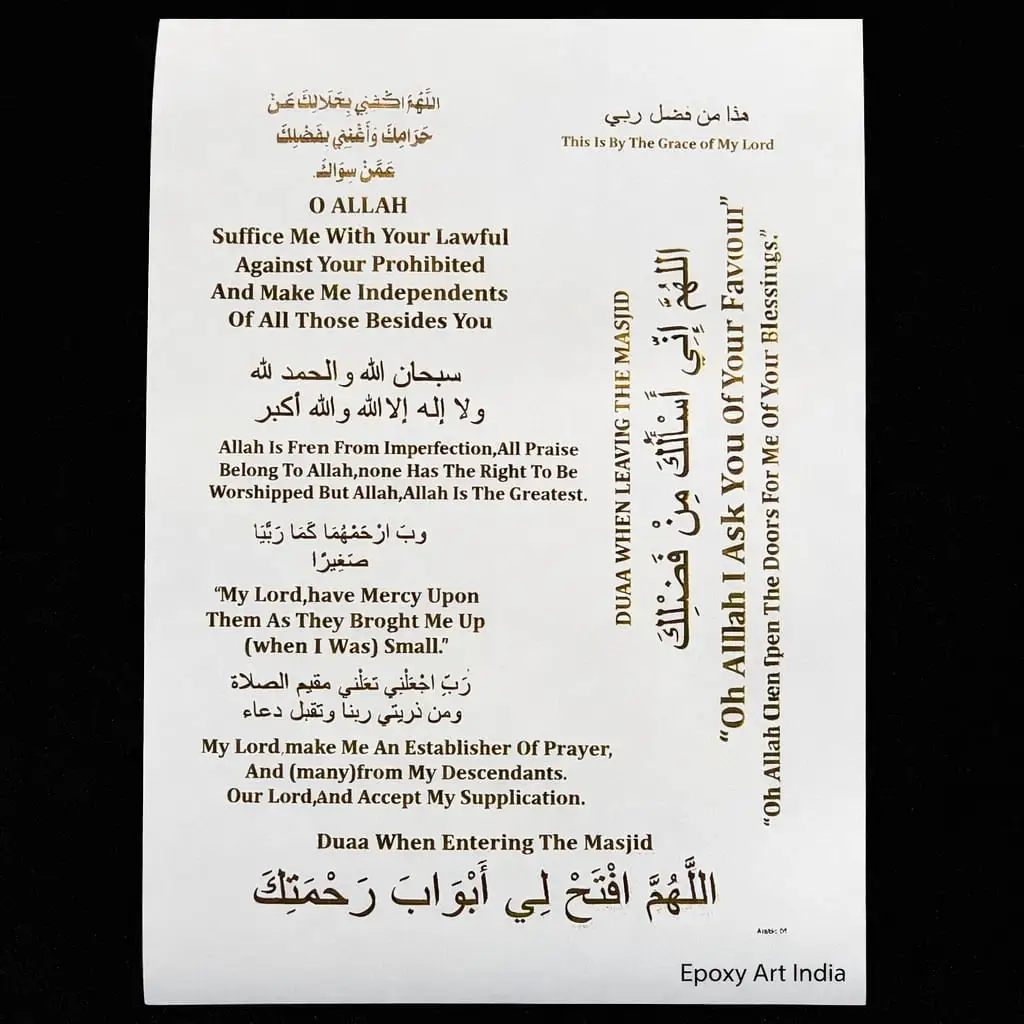 اللَّهُمَّ اكْفِنِي بِحَلَالِكَ عَنْ
حَرَامِكَ وَأَغْنِنِي بِفَضْلِكَ
عَمَّنْ سِوَاكَ.
O ALLAH
Suffice Me With Your Lawful
Against Your Prohibited
And Make Me Independents
Of All Those Besides You
سبحان الله والحمد لله
ولا إله إلا الله والله أكبر
Allah Is Fren From Imperfection,All Praise
Belong To Allah,none Has The Right To Be
Worshipped But Allah,Allah Is The Greatest.
وبَ ارْحَمْهُمَا كَمَا رَبَّيَا
صَغِيرًا
“My Lord,have Mercy Upon
Them As They Broght Me Up
(when I Was) Small.”
رَبِّ اجْعَلْنِي تعَلْني مقيم الصلاة
ومن ذريتي ربنا وتقبل دعاء
My Lord,make Me An Establisher Of Prayer,
And (many)from My Descendants.
Our Lord,And Accept My Supplication.
Duaa When Entering The Masjid
اللَّهُمَّ افْتَحْ لِي أَبْوَابَ رَحْمَتِكَ
هذا من فضل ربي
This Is By The Grace of My Lord
DUAA WHEN LEAVING THE MASJID
اللهُمَّ إِنِّي أَسْأَلُكَ مِنْ فَضْلِكَ
“Oh Alllah I Ask You Of Your Favour”
“Oh Allah The Doors For Me Of Your Blessings.”
Epoxy Art India